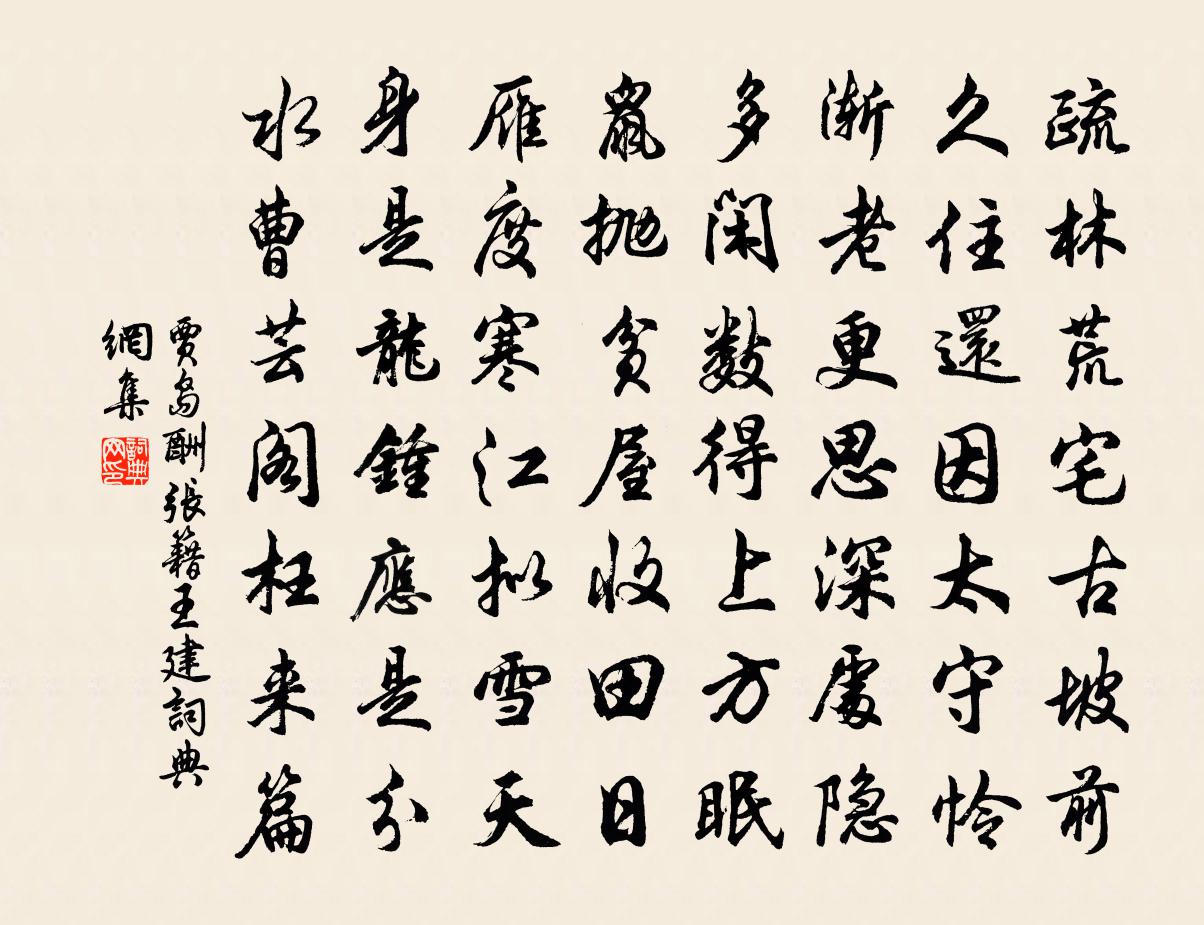 疏林荒宅古坡前
久住還因太守怜
渐老更思深處隐
多閑數得上方眠
鼠抛貧屋收田日
雁度寒江拟雪天
身是龍鍾應是分
水曹芸阁枉来篇
賈島酬張籍王建詞典
網集
詞典網印